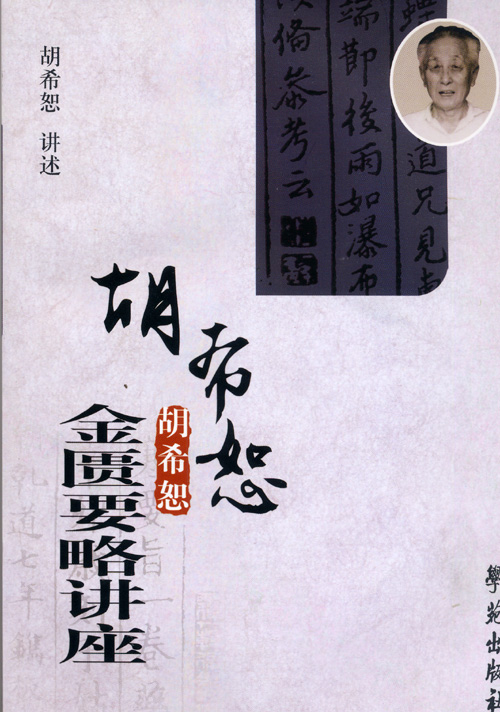 胡希恕 讲述
蝗
道兄見南
端節後雨如瀑布
備
參考云
胡希恕
胡希恕
金匮要略讲座
乾道七年鐫板
要旨一卷
學苑出版社